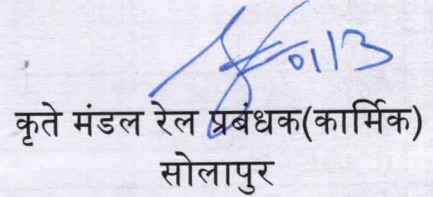 01/3
कृते मंडल रेल प्रबंधक(कार्मिक)
सोलापुर